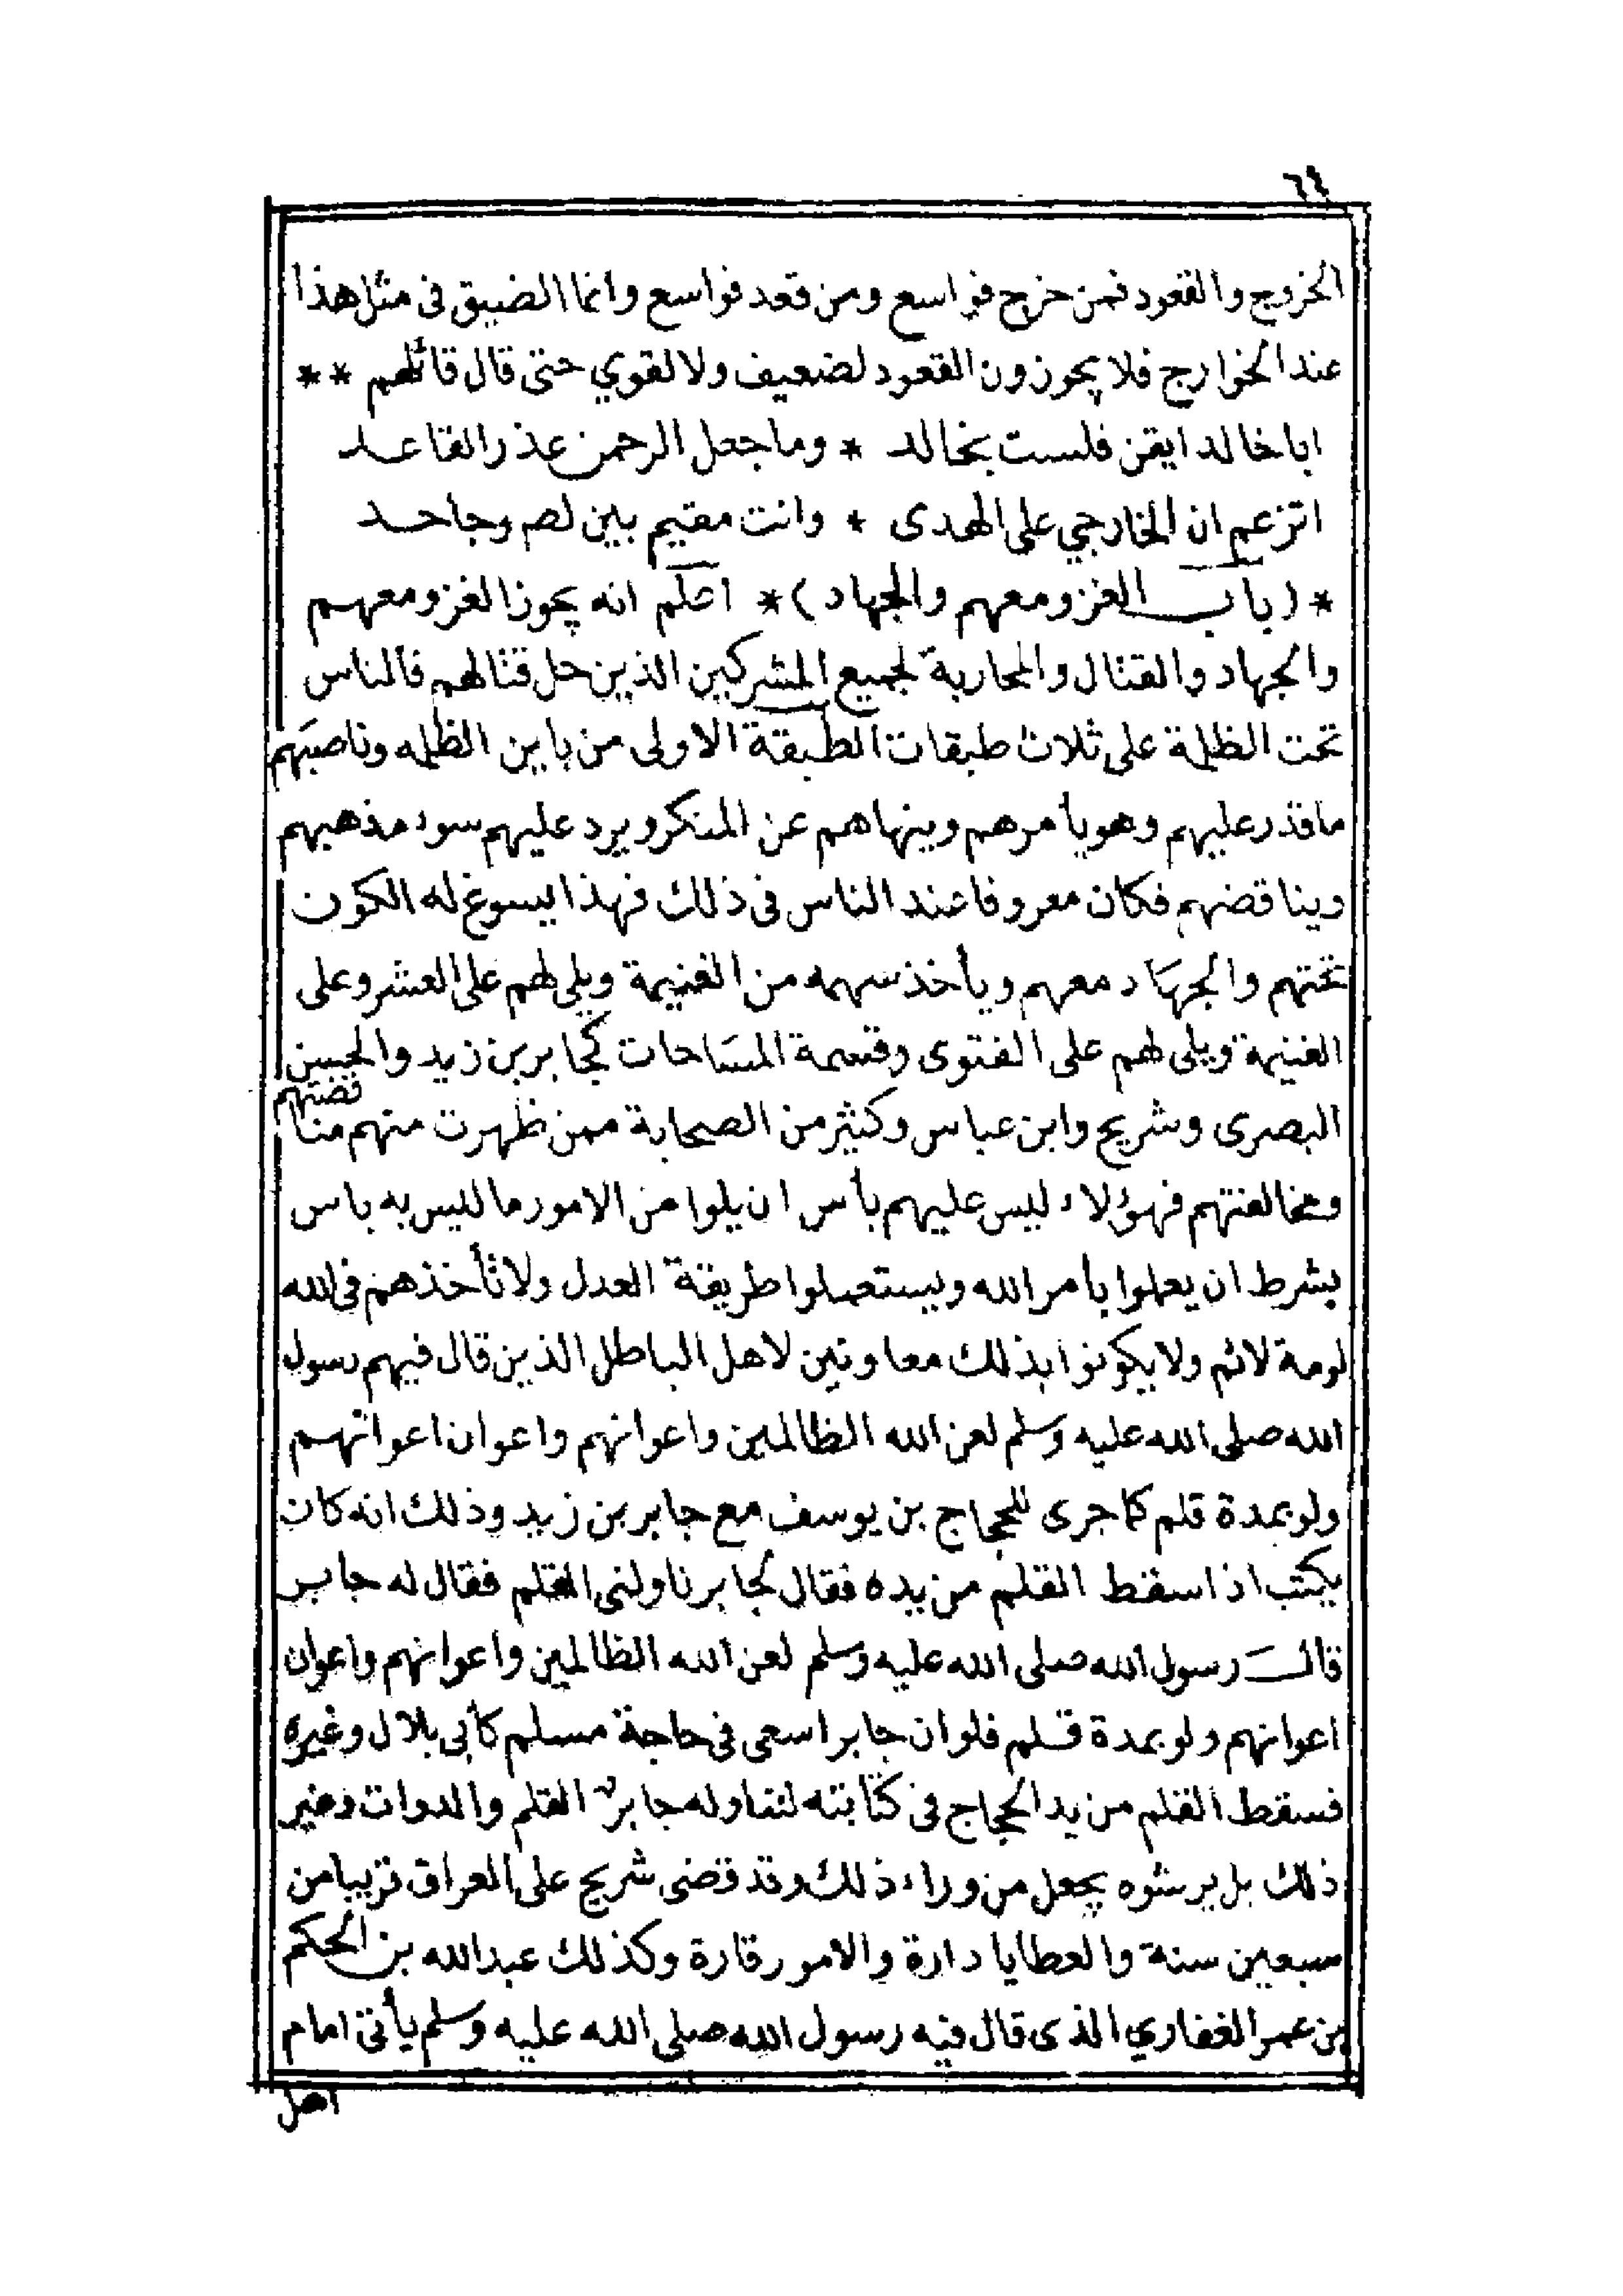 ٦٤
الخروج والقعود فمن خرج فواسع ومن قعد فواسع وانما الضيق فى مثل هذا
عند الخوارج فلا يجوزون القعود لضعيف ولا لقوي حتى قال قائلهم **
ابا خالد ايقن فلست بخالد * وما جعل الرحمن عذر القاعد
اتزعم ان الخارجي على الهدى * وانت مقيم بين لص وجاحد
* (باب الغزو معهم والجهاد) * اعلم انه يجوز الغزو معهم
والجهاد والقتال والمحاربة لجميع المشركين الذين حل قتالهم فالناس
تحت الظلمة على ثلاث طبقات الطبقة الاولى من باين الظلمه وناصبهم
ما قدر عليهم وهو يأمرهم وينهاهم عن المنكر ويرد عليهم سوء مذهبهم
ويناقضهم فكان معروفا عند الناس فى ذلك فهذا يسوغ له الكون
تحتهم والجهاد معهم ويأخذ سهمه من الغنيمة ويلى لهم على العشر وعلى
الغنيمة ويلى لهم على الفتوى وقسمة المساحات كجابر بن زيد والحسن
البصرى وشريح وابن عباس وكثير من الصحابة ممن ظهرت منهم مناقضتهم
ومخالفتهم فهؤلاء ليس عليهم بأس ان يلوا من الامور ما ليس به باس
بشرط ان يعملوا بأمر الله ويستعملوا طريقة العدل ولا تأخذهم فى الله
لومة لائم ولا يكونوا بذلك معاونين لاهل الباطل الذين قال فيهم رسول
الله صلى الله عليه وسلم لعن الله الظالمين واعوانهم واعوان اعوانهم
ولو بمدة قلم كما جرى للحجاج بن يوسف مع جابر بن زيد وذلك انه كان
يكتب اذا سقط القلم من يده فقال لجابر ناولنى القلم فقال له جابر
قال رسول الله صلى الله عليه وسلم لعن الله الظالمين واعوانهم واعوان
اعوانهم ولو بمدة قلم فلو ان جابرا سعى فى حاجة مسلم كأبى بلال وغيره
فسقط القلم من يد الحجاج فى كتابته لناوله جابر القلم والدوات وغير
ذلك بل يرشوه يجعل من وراء ذلك وقد قضى شريح على العراق قريبا من
سبعين سنة والعطايا دارة والامور قارة وكذلك عبدالله بن الحكم
بن عمر الغفاري الذى قال فيه رسول الله صلى الله عليه وسلم يأتى امام
اهل